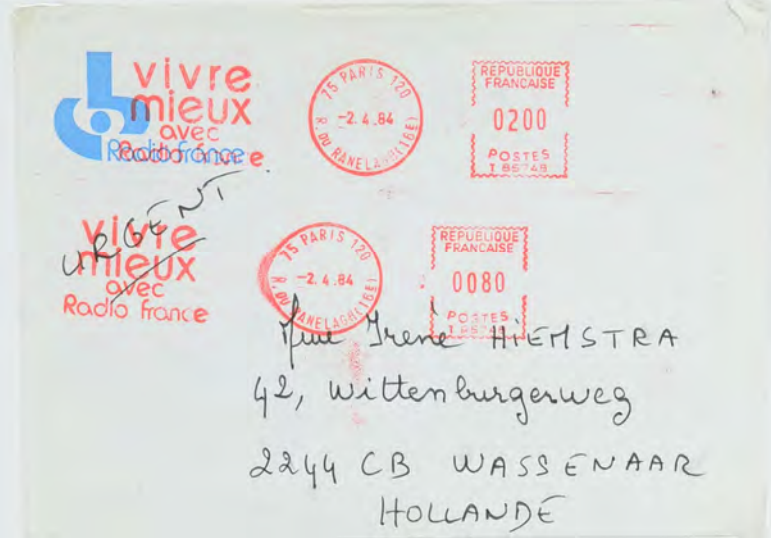 vivre
mieux
avec
Radio france
Radiofrance
75 PARIS 120
-2.4.84
R. DU RANELAGH (16E)
REPUBLIQUE
FRANCAISE
0200
POSTES
T 85748
URGENT
vivre
mieux
avec
Radio france
75 PARIS 120
-2.4.84
R. DU RANELAGH (16E)
REPUBLIQUE
FRANCAISE
0080
POSTES
Mme Irene HIEMSTRA
42, Wittenburgerweg
2244 CB WASSENAAR
HOLLANDE